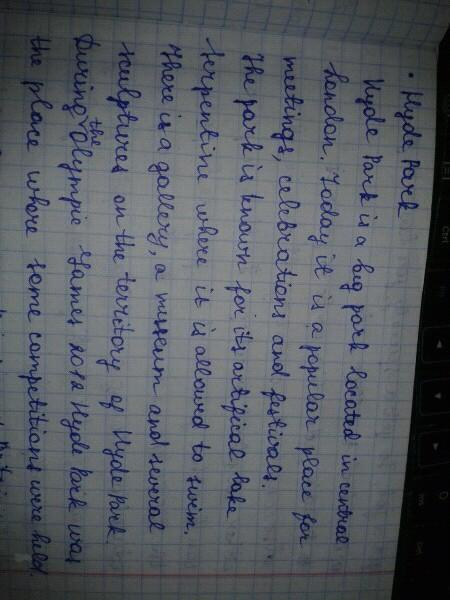 • Hyde Park
Hyde Park is a big park located in central
London. Today it is a popular place for
meetings, celebrations and festivals.
The park is known for its artificial lake
Serpentine where it is allowed to swim.
There is a gallery, a museum and several
sculptures on the territory of Hyde Park.
During the Olympic Games 2012 Hyde Park was
the place where some competitions were held.
Ctrl